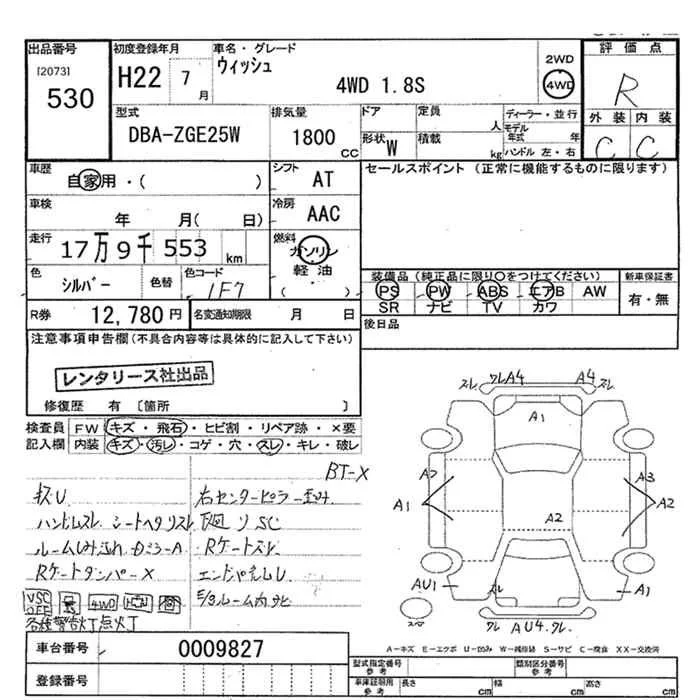 出品番号
[2073]
530
初度登録年月
H22 7月
車名・グレード
ウィッシュ
4WD 1.8S
2WD
4WD
評価点
R
外装 内装
C C
型式
DBA-ZGE25W
排気量
1800 CC
ドア
定員 人
形状 W
積載 kg
ディーラー・並行
モデル年式 年
ハンドル 左・右
車歴
自家用・( )
シフト AT
車検 年 月( 日)
冷房 AAC
走行 17万9千553km
燃料 ガソリン
軽油
( )
色 シルバー
色替
色コード 1F7
R券 12,780円
名変通知期限 月 日
セールスポイント (正常に機能するものに限ります)
装備品 (純正品に限り○をつけてください)
PS PW ABS エアB AW
SR ナビ TV カワ
新車保証書
有・無
後日品
注意事項申告欄(不具合内容等は具体的に記入して下さい)
レンタリース社出品
修復歴 有 〔箇所 〕
検査員記入欄
FW キズ・飛石・ヒビ割・リペア跡・×要
内装 キズ・汚レ・コゲ・穴・スレ・キレ・破レ
BT-X
右センターピラー歪み
ハンドルスレ シートヘタリスレ
SC
Rゲートズレ
Rゲートダンパー×
VSC OFF 4WD
各種警告灯点火丁
スレ クレ A4 A4 スレ
A1
A2 A3
A1 A2
A2
AU1 スレ A1
クレ AU4.クレ
A-キズ E-エクボ U-凹み W-補修跡 S-サビ C-腐食 XX-交換済
車台番号 0009827
登録番号
型式指定番号 参考
類別区分番号 参考
車庫証明用 参考
長さ cm 幅 cm 高さ cm